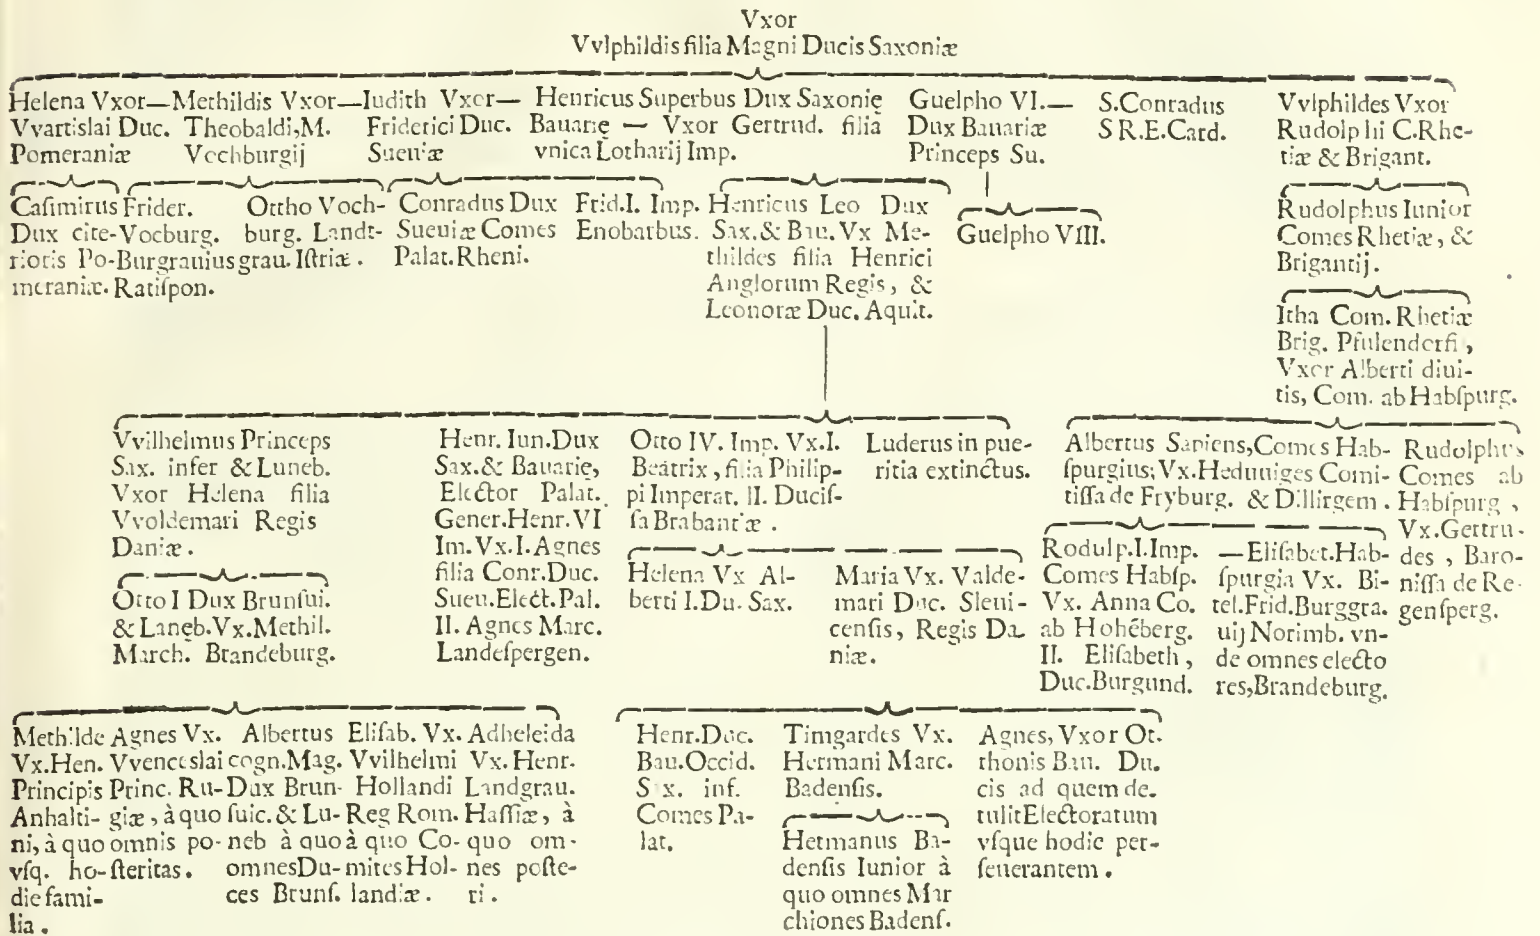 Vxor
Vvlphildis filia Magni Ducis Saxoniæ
Helena Vxor—
Vvartislai Duc.
Pomeraniæ
Methildis Vxor—
Theobaldi,M.
Vochburgij
Iudith Vxor—
Friderici Duc.
Sueuiæ
Henricus Superbus Dux Saxonię
Bauarię — Vxor Gertrud. filia
vnica Lotharij Imp.
Guelpho VI.—
Dux Bauariæ
Princeps Su.
S.Conradus
S R.E.Card.
Vvlphildes Vxor
Rudolphi C.Rhe-
tiæ & Brigant.
Caſimirus
Dux cite-
rioris Po-
meraniæ.
Frider.
Vocburg.
Burgrauius
Ratiſpon.
Ottho Voch-
burg. Landt-
grau. Iſtriæ.
Conradus Dux
Sueuiæ Comes
Palat.Rheni.
Frid.I. Imp.
Enobarbus.
Henricus Leo Dux
Sax.& Bau.Vx Me-
thildes filia Henrici
Anglorum Regis, &
Leonoræ Duc. Aquit.
Guelpho VIII.
Rudolphus Iunior
Comes Rhetiæ, &
Brigantij.
Itha Com. Rhetiæ
Brig. Pfulendorfi,
Vxor Alberti diui-
tis, Com. ab Habſpurg.
Vvilhelmus Princeps
Sax. infer & Luneb.
Vxor Helena filia
Vvoldemari Regis
Daniæ.
Henr. Iun.Dux
Sax.& Bauarię,
Elector Palat.
Gener.Henr.VI
Im.Vx.I.Agnes
filia Conr.Duc.
Sueu.Elect.Pal.
II. Agnes Marc.
Landeſpergen.
Otto IV. Imp. Vx.I.
Beatrix, filia Philip-
pi Imperat. II. Duciſ-
ſa Brabantiæ.
Luderus in pue-
ritia extinctus.
Albertus Sapiens,Comes Hab-
ſpurgius; Vx.Heduuiges Comi-
tiſſa de Fryburg. & Dillirgem.
Rudolphus
Comes ab
Habſpurg,
Vx.Gertru-
des, Baro-
niſſa de Re-
genſperg.
Otto I Dux Brunſui.
& Lanęb.Vx.Methil.
March. Brandeburg.
Helena Vx Al-
berti I.Du. Sax.
Maria Vx. Valde-
mari Duc. Sleui-
cenſis, Regis Da-
niæ.
Rodulp.I.Imp.
Comes Habſp.
Vx. Anna Co.
ab Hohēberg.
II. Eliſabeth,
Duc.Burgund.
—Eliſabet.Hab-
ſpurgia Vx. Bi-
tel.Frid.Burggra.
uij Norimb. vn-
de omnes electo
res,Brandeburg.
Methilde
Vx.Hen.
Principis
Anhalti-
ni, à quo
vſq. ho-
die fami-
lia.
Agnes Vx.
Vvenceslai
Princ. Ru-
giæ, à quo
omnis po-
ſteritas.
Albertus
cogn.Mag.
Dux Brun-
ſuic. & Lu-
neb à quo
omnesDu-
ces Brunſ.
Eliſab. Vx.
Vvilhelmi
Hollandi
Reg Rom.
à quo Co-
mites Hol-
landiæ.
Adheleida
Vx. Henr.
Landgrau.
Haſſiæ, à
quo om-
nes poſte-
ri.
Henr.Duc.
Bau.Occid.
Sax. inf.
Comes Pa-
lat.
Timgardes Vx.
Hermani Marc.
Badenſis.
Agnes, Vxor Ot.
thonis Bau. Du.
cis ad quem de.
tulitElectoratum
vſque hodie per-
ſeuerantem.
Hermanus Ba-
denſis Iunior à
quo omnes Mar
chiones Badenſ.